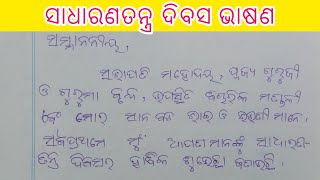 ସାଧାରଣତନ୍ତ୍ର ଦିବସ ଭାଷଣ
ସମ୍ମାନନୀୟ,
ସଭାପତି ମହୋଦୟ, ପୂଜ୍ୟ ଗୁରୁଜୀ
ଓ ଗୁରୁମା ବୃନ୍ଦ, ଉପସ୍ଥିତ ମଣ୍ଡଳୀ
ଏବଂ ମୋର ସାନ ବଡ ଭାଇ ଓ ଭଉଣୀ ମାନେ,
ସର୍ବପ୍ରଥମେ ମୁଁ ଆପଣ ମାନଙ୍କୁ ସାଧାରଣ-
ତନ୍ତ୍ର ଦିବସର ହାର୍ଦ୍ଦିକ ଶୁଭେଚ୍ଛା ଜଣାଉଛି ।